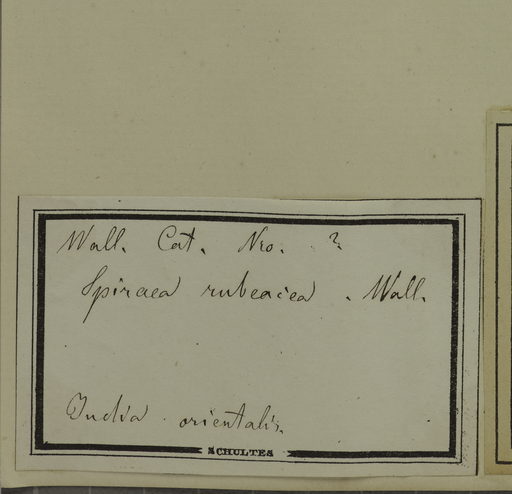 Wall. Cat. Nro. ?
Spiraea rubeacea . Wall.
India orientalis.
SCHULTES